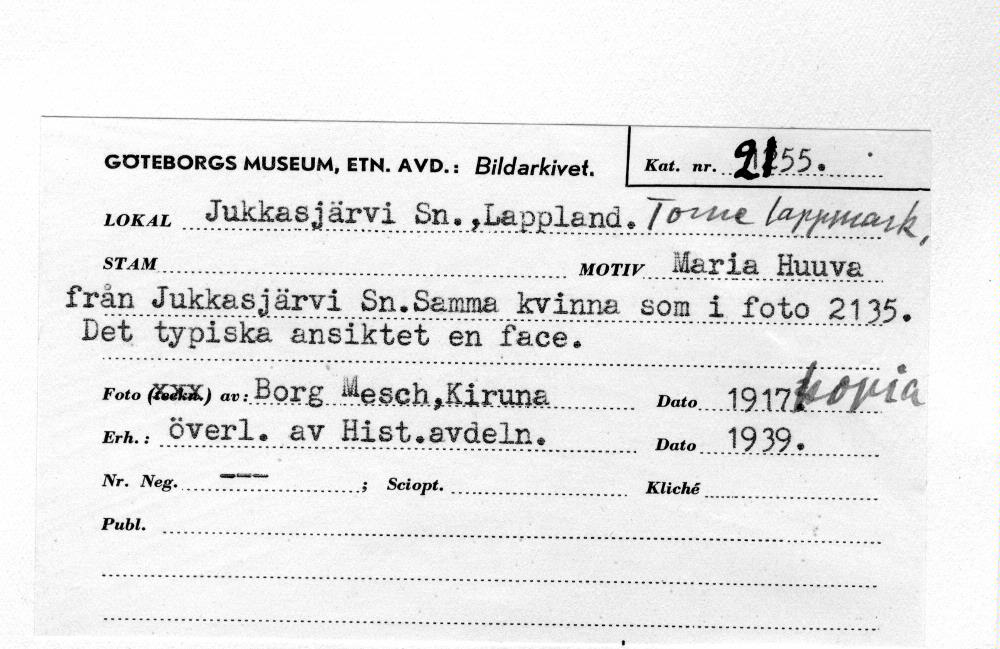 GÖTEBORGS MUSEUM, ETN. AVD.: Bildarkivet.
Kat. nr. 2155.
LOKAL Jukkasjärvi Sn.,Lappland. Torne lappmark,
STAM MOTIV Maria Huuva
från Jukkasjärvi Sn.Samma kvinna som i foto 2135.
Det typiska ansiktet en face.
Foto (teckn.) av: Borg Mesch,Kiruna Dato 1917. kopia
Erh.: överl. av Hist.avdeln. Dato 1939.
Nr. Neg. --- ; Sciopt. Kliché
Publ.